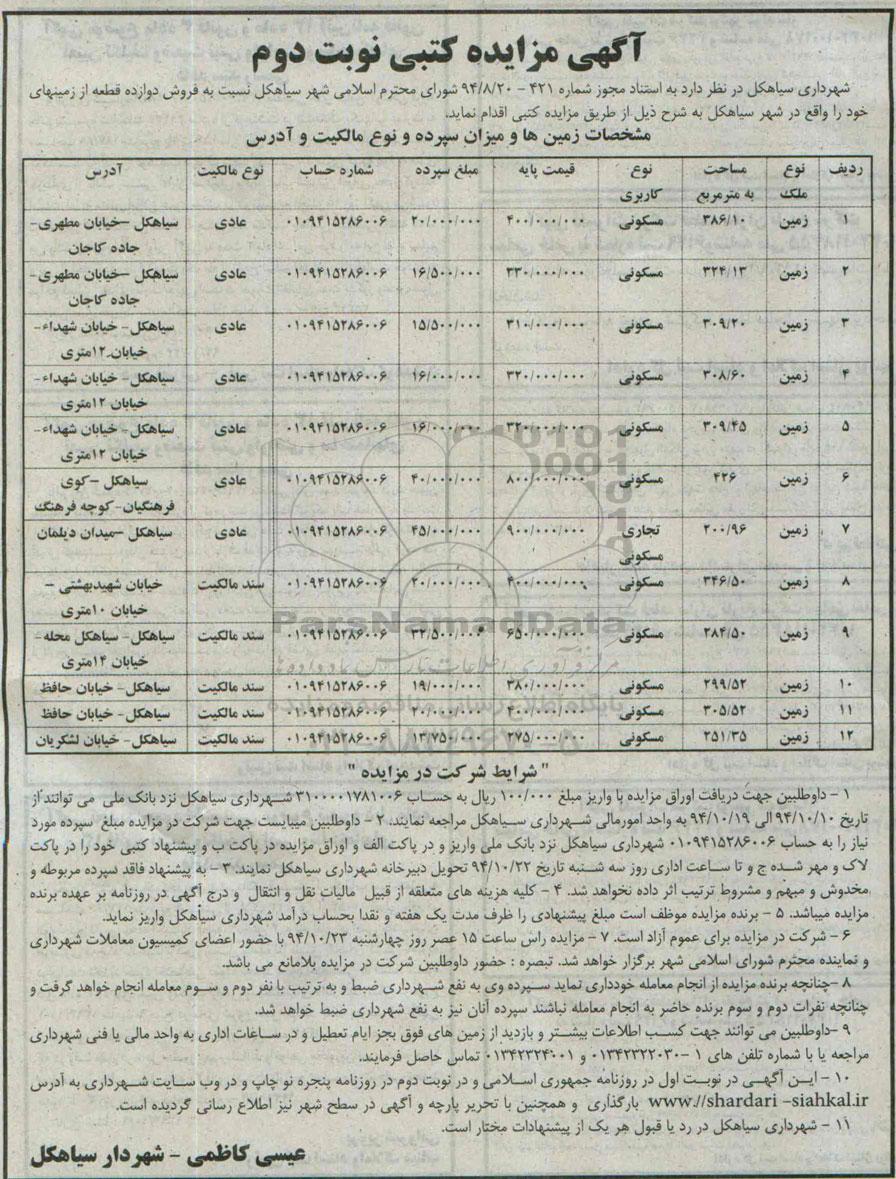 آگهی مزایده کتبی نوبت دوم
شهرداری سیاهکل در نظر دارد به استناد مجوز شماره ۴۲۱ - ۹۴/۸/۲۰ شورای محترم اسلامی شهر سیاهکل نسبت به فروش دوازده قطعه از زمینهای
خود را واقع در شهر سیاهکل به شرح ذیل از طریق مزایده کتبی اقدام نماید.
مشخصات زمین ها و میزان سپرده و نوع مالکیت و آدرس
ردیف نوع ملک مساحت به مترمربع نوع کاربری قیمت پایه مبلغ سپرده شماره حساب نوع مالکیت آدرس
۱ زمین ۳۸۶/۱۰ مسکونی ۴۰۰/۰۰۰/۰۰۰ ۲۰/۰۰۰/۰۰۰ ۰۱۰۹۴۱۵۲۸۶۰۰۶ عادی سیاهکل –خیابان مطهری- جاده کاجان
۲ زمین ۳۲۴/۱۳ مسکونی ۳۳۰/۰۰۰/۰۰۰ ۱۶/۵۰۰/۰۰۰ ۰۱۰۹۴۱۵۲۸۶۰۰۶ عادی سیاهکل –خیابان مطهری- جاده کاجان
۳ زمین ۳۰۹/۲۰ مسکونی ۳۱۰/۰۰۰/۰۰۰ ۱۵/۵۰۰/۰۰۰ ۰۱۰۹۴۱۵۲۸۶۰۰۶ عادی سیاهکل- خیابان شهداء- خیابان ۱۲متری
۴ زمین ۳۰۸/۶۰ مسکونی ۳۲۰/۰۰۰/۰۰۰ ۱۶/۰۰۰/۰۰۰ ۰۱۰۹۴۱۵۲۸۶۰۰۶ عادی سیاهکل- خیابان شهداء- خیابان ۱۲متری
۵ زمین ۳۰۹/۴۵ مسکونی ۳۲۰/۰۰۰/۰۰۰ ۱۶/۰۰۰/۰۰۰ ۰۱۰۹۴۱۵۲۸۶۰۰۶ عادی سیاهکل- خیابان شهداء- خیابان ۱۲متری
۶ زمین ۴۲۶ مسکونی ۸۰۰/۰۰۰/۰۰۰ ۴۰/۰۰۰/۰۰۰ ۰۱۰۹۴۱۵۲۸۶۰۰۶ عادی سیاهکل –کوی فرهنگیان- کوچه فرهنگ
۷ زمین ۲۰۰/۹۶ تجاری مسکونی ۹۰۰/۰۰۰/۰۰۰ ۴۵/۰۰۰/۰۰۰ ۰۱۰۹۴۱۵۲۸۶۰۰۶ عادی سیاهکل –میدان دیلمان
۸ زمین ۳۴۶/۵۰ مسکونی ۴۰۰/۰۰۰/۰۰۰ ۲۰/۰۰۰/۰۰۰ ۰۱۰۹۴۱۵۲۸۶۰۰۶ سند مالکیت خیابان شهیدبهشتی – خیابان ۱۰متری
۹ زمین ۲۸۴/۵۰ مسکونی ۶۵۰/۰۰۰/۰۰۰ ۳۲/۵۰۰/۰۰۰ ۰۱۰۹۴۱۵۲۸۶۰۰۶ سند مالکیت سیاهکل- سیاهکل محله- خیابان ۱۴متری
۱۰ زمین ۲۹۹/۵۲ مسکونی ۳۸۰/۰۰۰/۰۰۰ ۱۹/۰۰۰/۰۰۰ ۰۱۰۹۴۱۵۲۸۶۰۰۶ سند مالکیت سیاهکل- خیابان حافظ
۱۱ زمین ۳۰۵/۵۲ مسکونی ۴۰۰/۰۰۰/۰۰۰ ۲۰/۰۰۰/۰۰۰ ۰۱۰۹۴۱۵۲۸۶۰۰۶ سند مالکیت سیاهکل- خیابان حافظ
۱۲ زمین ۲۵۱/۳۵ مسکونی ۲۷۵/۰۰۰/۰۰۰ ۱۳/۷۵۰/۰۰۰ ۰۱۰۹۴۱۵۲۸۶۰۰۶ سند مالکیت سیاهکل- خیابان لشکریان
ParsNamadData
" شرایط شرکت در مزایده "
۱ – داوطلبین جهت دریافت اوراق مزایده با واریز مبلغ ۱۰۰/۰۰۰ ریال به حساب ۳۱۰۰۰۰۱۷۸۱۰۰۶ شهرداری سیاهکل نزد بانک ملی می توانند از
تاریخ ۹۴/۱۰/۱۰ الی ۹۴/۱۰/۱۹ به واحد امورمالی شهرداری سیاهکل مراجعه نمایند. ۲ – داوطلبین میبایست جهت شرکت در مزایده مبلغ سپرده مورد
نیاز را به حساب ۰۱۰۹۴۱۵۲۸۶۰۰۶ شهرداری سیاهکل نزد بانک ملی واریز و در پاکت الف و اوراق مزایده در پاکت ب و پیشنهاد کتبی خود را در پاکت
لاک و مهر شده ج و تا ساعت اداری روز سه شنبه تاریخ ۹۴/۱۰/۲۲ تحویل دبیرخانه شهرداری سیاهکل نمایند. ۳ – به پیشنهاد فاقد سپرده مربوطه و
مخدوش و مبهم و مشروط ترتیب اثر داده نخواهد شد. ۴ – کلیه هزینه های متعلقه از قبیل مالیات نقل و انتقال و درج آگهی در روزنامه بر عهده برنده
مزایده میباشد. ۵ – برنده مزایده موظف است مبلغ پیشنهادی را ظرف مدت یک هفته و نقدا بحساب درآمد شهرداری سیاهکل واریز نماید.
۶ – شرکت در مزایده برای عموم آزاد است. ۷ – مزایده راس ساعت ۱۵ عصر روز چهارشنبه ۹۴/۱۰/۲۳ با حضور اعضای کمیسیون معاملات شهرداری
و نماینده محترم شورای اسلامی شهر برگزار خواهد شد. تبصره : حضور داوطلبین شرکت در مزایده بلامانع می باشد.
۸ –چنانچه برنده مزایده از انجام معامله خودداری نماید سپرده وی به نفع شهرداری ضبط و به ترتیب با نفر دوم و سوم معامله انجام خواهد گرفت و
چنانچه نفرات دوم و سوم برنده حاضر به انجام معامله نباشند سپرده آنان نیز به نفع شهرداری ضبط خواهد شد.
۹ –داوطلبین می توانند جهت کسب اطلاعات بیشتر و بازدید از زمین های فوق بجز ایام تعطیل و در ساعات اداری به واحد مالی یا فنی شهرداری
مراجعه یا با شماره تلفن های ۱ -۰۱۳۴۲۳۲۲۰۳۰ و ۰۱۳۴۲۳۲۴۰۰۱ تماس حاصل فرمایند.
۱۰ – این آگهی در نوبت اول در روزنامه جمهوری اسلامی و در نوبت دوم در روزنامه پنجره نو چاپ و در وب سایت شهرداری به آدرس
www.//shardari –siahkal.ir بارگذاری و همچنین با تحریر پارچه و آگهی در سطح شهر نیز اطلاع رسانی گردیده است.
۱۱ – شهرداری سیاهکل در رد یا قبول هر یک از پیشنهادات مختار است.
عیسی کاظمی – شهردار سیاهکل